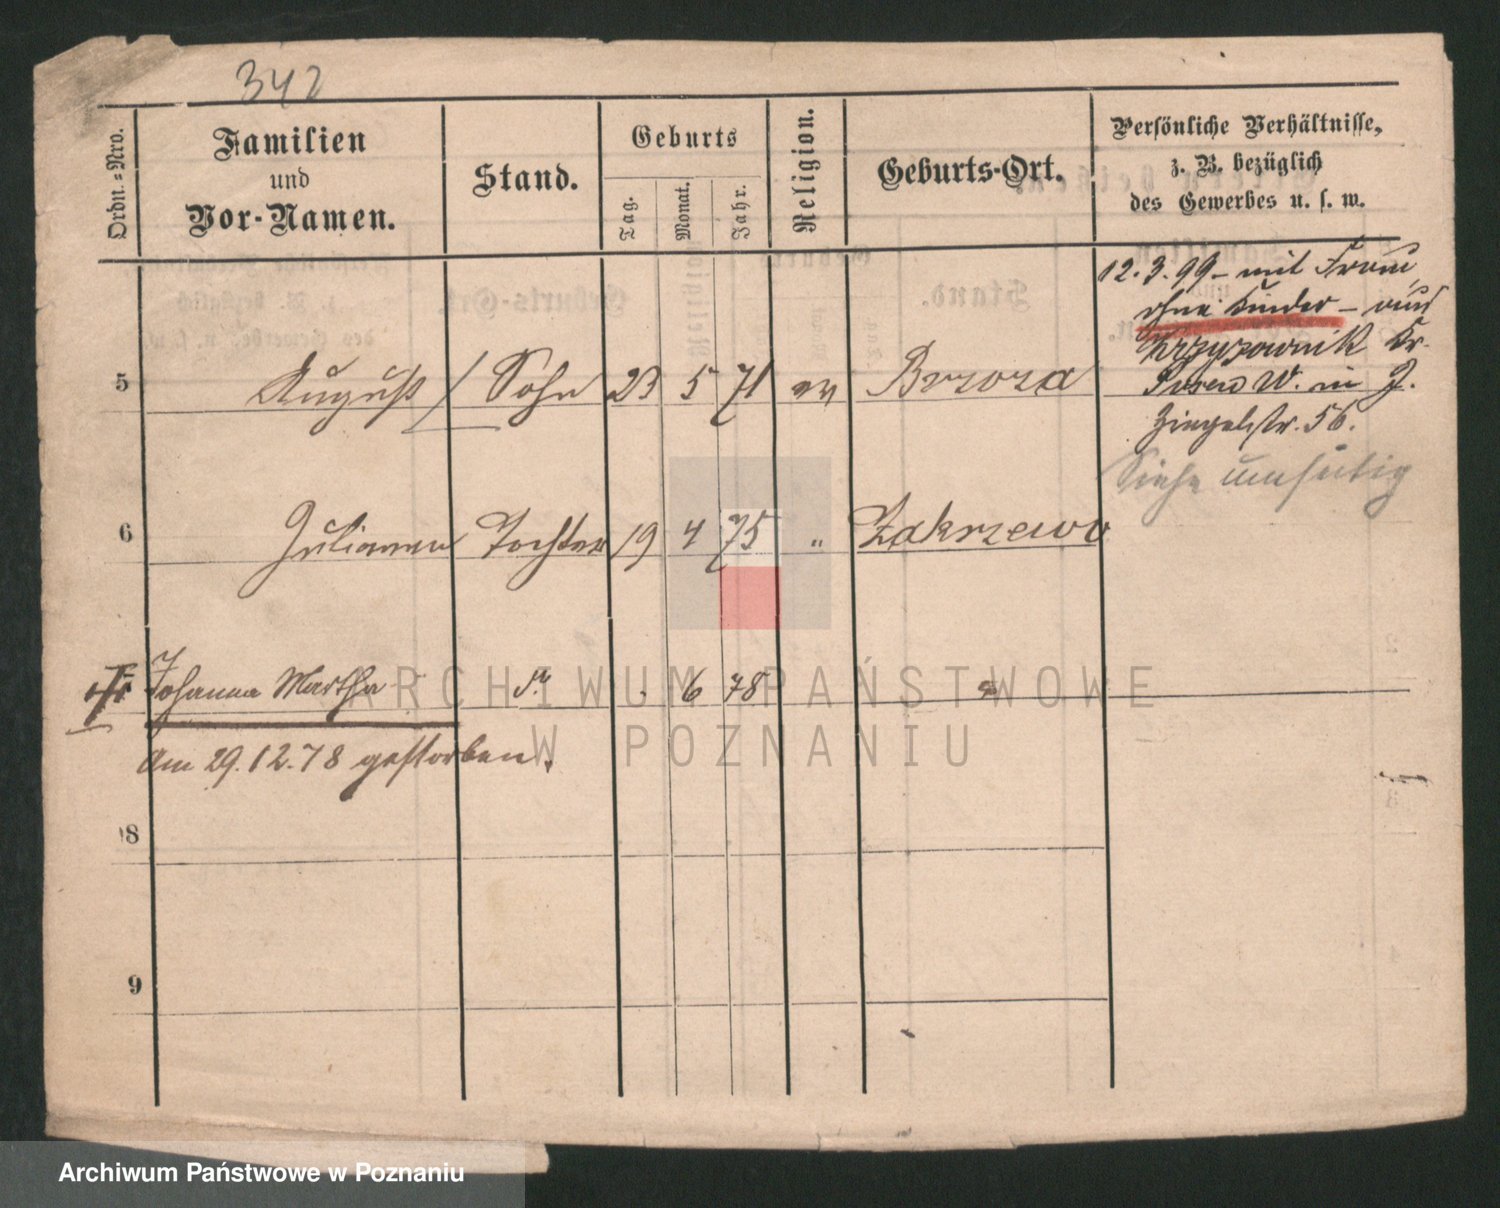 342
Ordn.=Nro.
Familien
und
Vor-Namen.
Stand.
Geburts
Tag.
Monat.
Jahr.
Religion.
Geburts-Ort.
Persönliche Verhältnisse,
z. B. bezüglich
des Gewerbes u. s. w.
12.3.99 - mit Frau
ohne Kinder - aus
Krzyzownik Kr.
Posen W. in J.
Ziegelstr. 56.
Siehe umseitig
5 August / Sohn 23 5 71 ev Brzoza
6 Julianna Tochter 19 4 75 " Zakrzewo
Johanna Martha 6 78
Am 29.12.78 gestorben.
8
9
ARCHIWUM PAŃSTWOWE
W POZNANIU
Archiwum Państwowe w Poznaniu